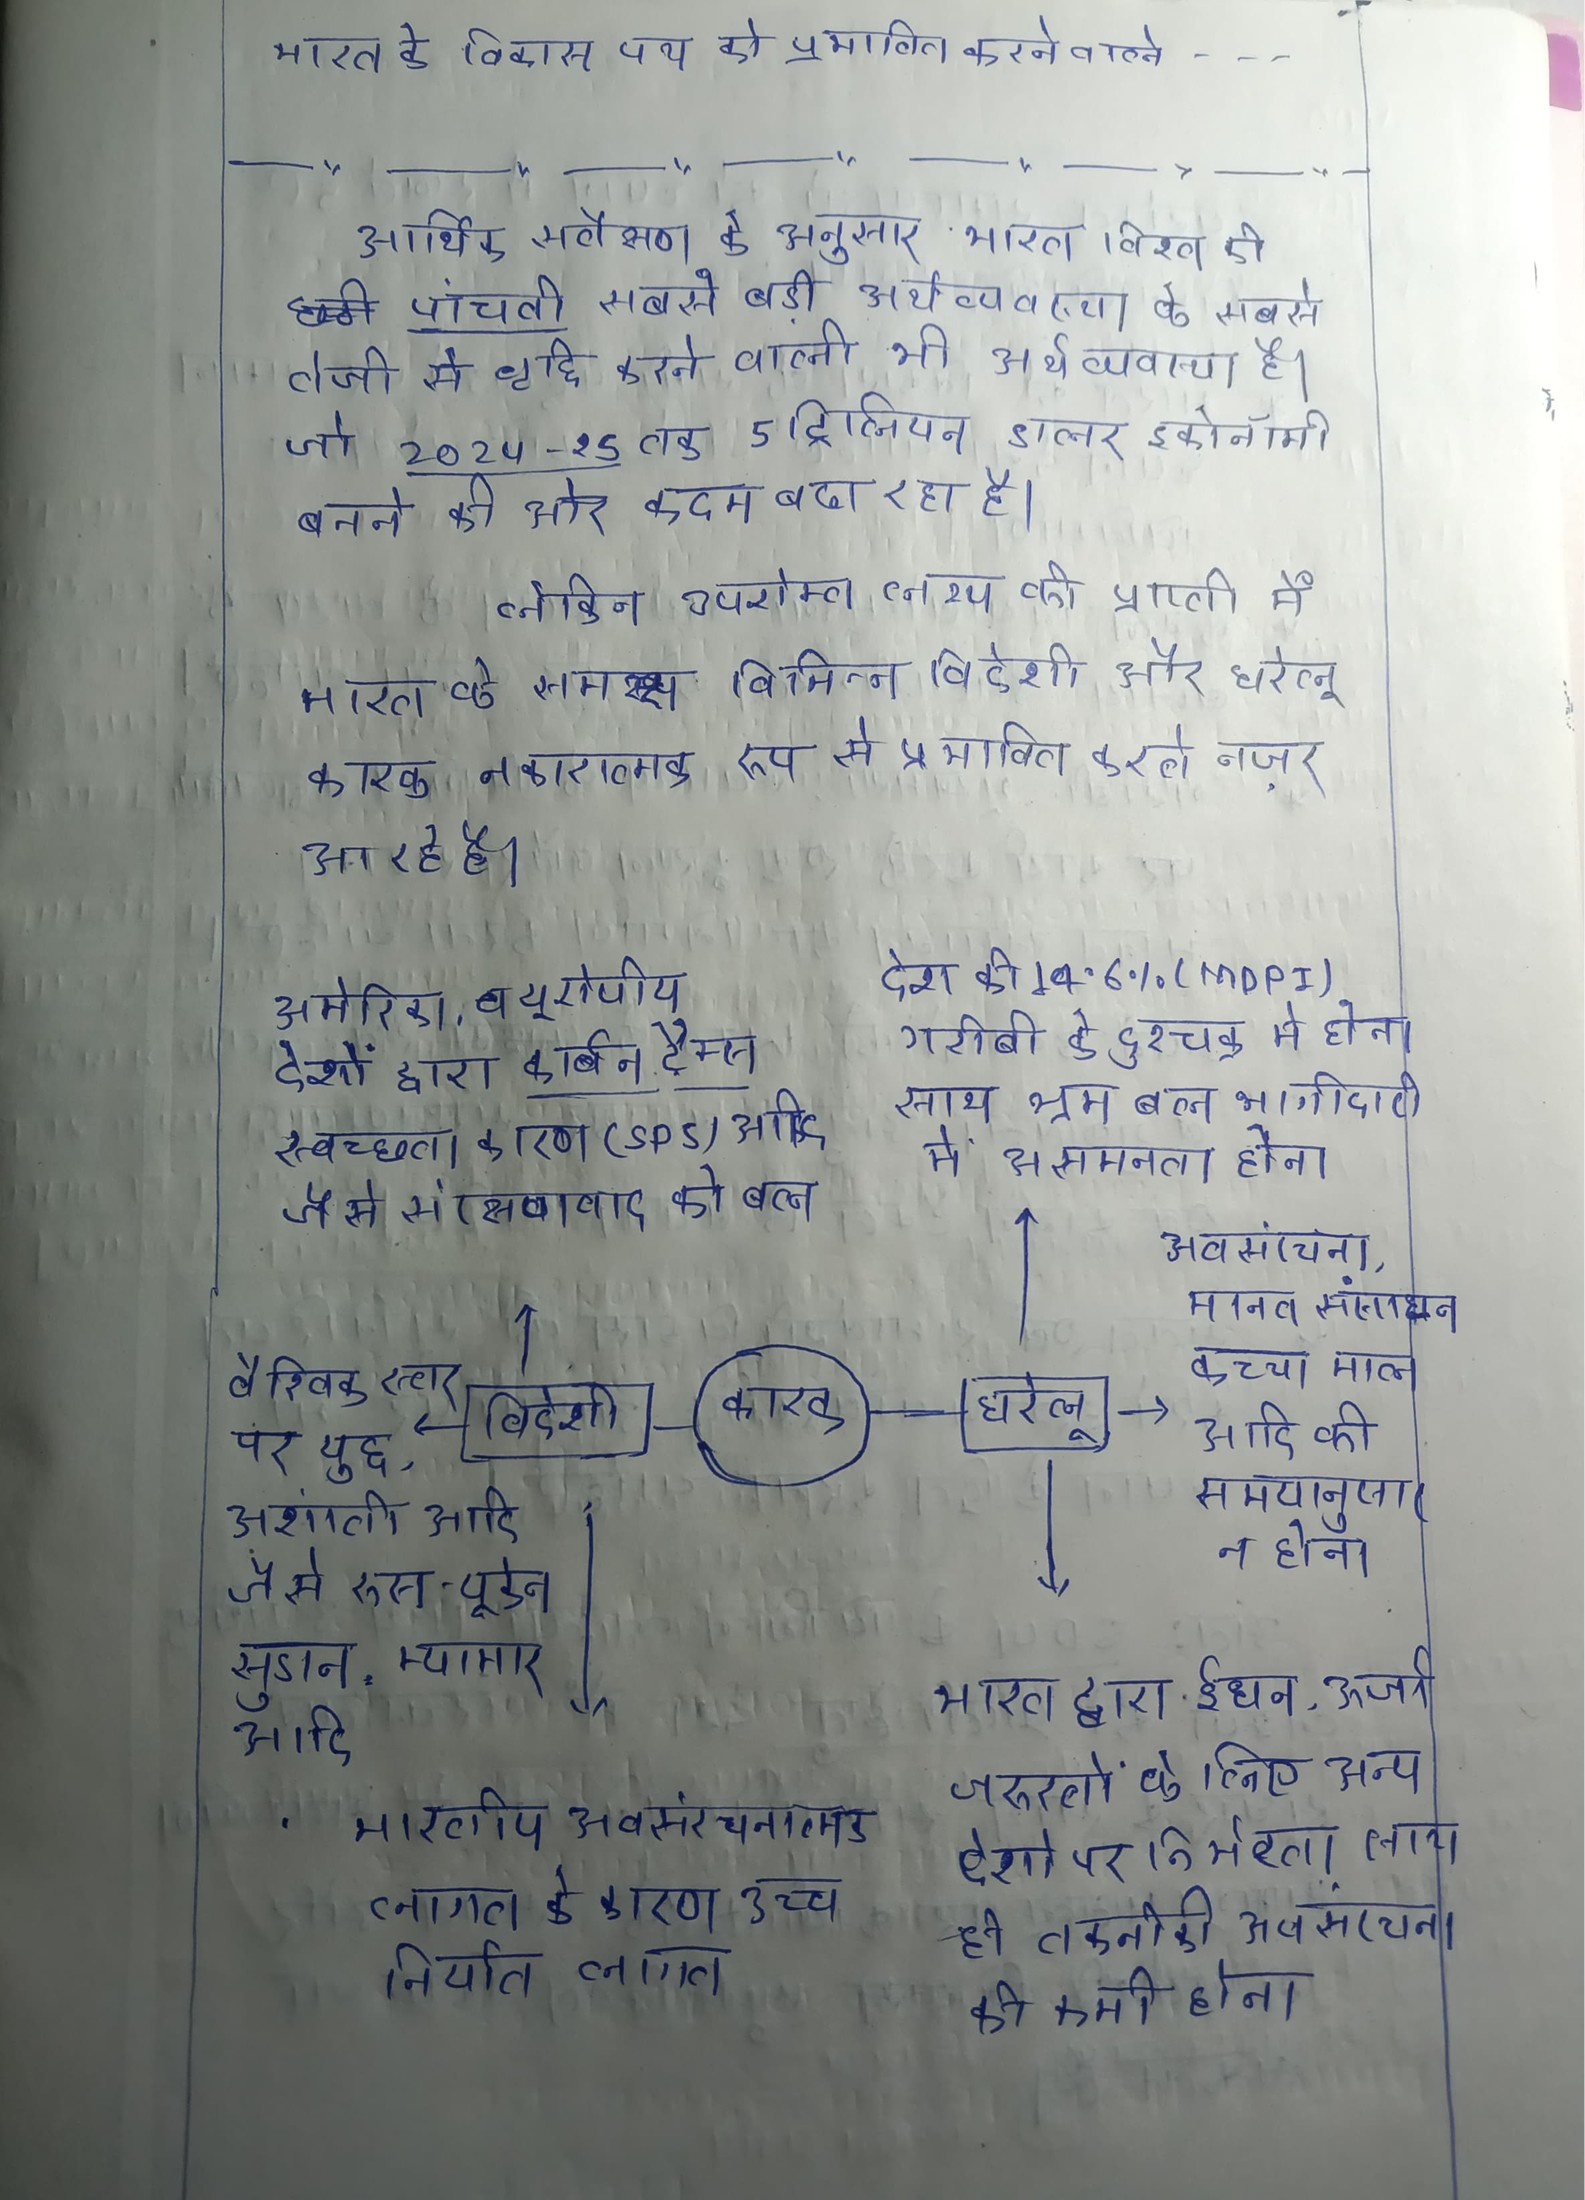 भारत के विकास पथ को प्रभावित करने वाले ----
आर्थिक सर्वेक्षण के अनुसार भारत विश्व की
पांचवी सबसे बड़ी अर्थव्यवस्था के सबसे
तेजी से वृद्धि करने वाली भी अर्थव्यवस्था है।
जो 2024-25 तक 5 ट्रिलियन डालर इकोनॉमी
बनने की ओर कदम बढा रहा है।
लेकिन उपरोक्त लक्ष्य की प्राप्ती में
भारत के समक्ष विभिन्न विदेशी और घरेलू
कारक नकारात्मक रूप से प्रभावित करते नज़र
आ रहे है।
अमेरिका, व यूरोपीय
देशों द्वारा कार्बन टैक्स
स्वच्छता कारण (SPS) आदि
जैसे संरक्षणवाद को बल
देश की 14.6% (MDPI)
गरीबी के दुश्चक्र मे होना
साथ श्रम बल भागीदारी
में असमनता होना
अवसंरचना,
मानव संसाधन
कच्चा माल
आदि की
समयानुसार
न होना
विदेशी
कारक
घरेलू
वैश्विक स्तर
पर युद्ध,
अशांती आदि
जैसे रूस-यूक्रेन
सुडान, म्यामार
आदि
भारतीय अवसंरचनात्मक
लागत के कारण उच्च
निर्यात लागत
भारत द्वारा ईधन, ऊर्जा
जरूरतों के लिए अन्य
देशो पर निर्भरता, साथ
ही तकनीकी अवसंरचना
की कमी होना